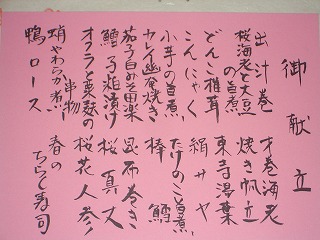 御献立
出汁巻
桜海老と大豆の旨煮
どんこ椎茸
こんにゃく
小芋の旨煮
カレイ幽庵焼き
茄子白みそ田楽
鱈子粕漬け
オクラと粟麩の串物
蛸やわらか煮
鴨ロース
才巻海老
焼き帆立
東寺湯葉
絹サヤ
たけのこ旨煮
棒鱈
昆布巻き
桜真丈
桜花人参
春のちらし寿司